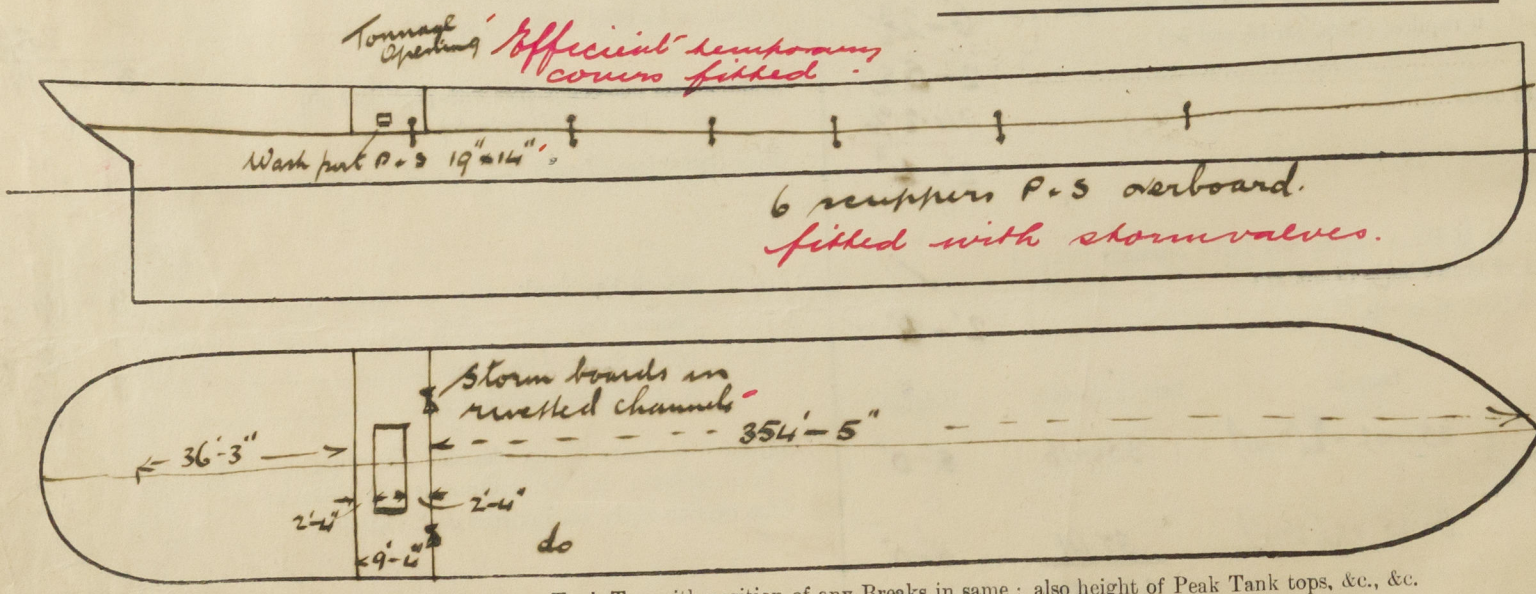 Tonnage
Opening
Efficient temporary
covers fitted.
Wash port P & S 19" x 14".
6 scuppers P & S overboard.
fitted with stormvalves.
Storm boards in
rivetted channels
36'-3"
354'-5"
2'-4"
2'-4"
9'-4"
do
position of any Breaks in same; also height of Peak Tank tops, &c., &c.